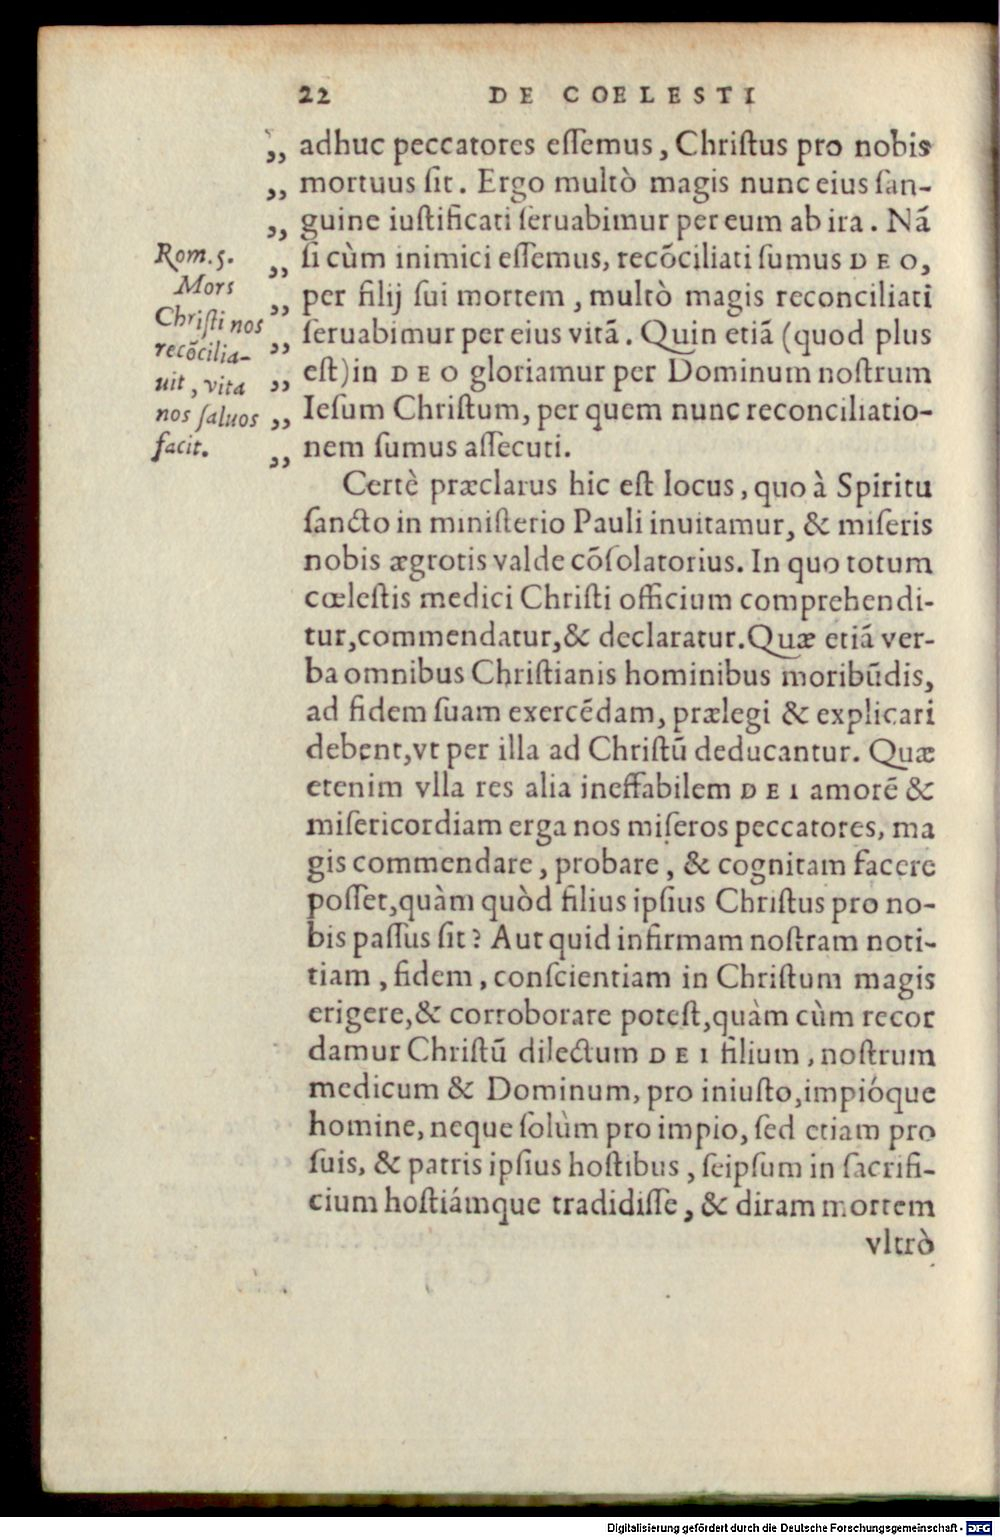 22 DE COELESTI
„ adhuc peccatores eſſemus, Chriſtus pro nobis
„ mortuus ſit. Ergo multò magis nunc eius ſan-
„ guine iuſtificati ſeruabimur per eum ab ira. Nã
„ ſi cùm inimici eſſemus, recõciliati ſumus DEO,
„ per filij ſui mortem, multò magis reconciliati
„ ſeruabimur per eius vitã. Quin etiã (quod plus
„ eſt) in DEO gloriamur per Dominum noſtrum
„ Ieſum Chriſtum, per quem nunc reconciliatio-
„ nem ſumus aſſecuti.
Rom. 5.
Mors
Chriſti nos
recõcilia-
uit, vita
nos ſaluos
facit.
Certè præclarus hic eſt locus, quo à Spiritu
ſancto in miniſterio Pauli inuitamur, & miſeris
nobis ægrotis valde cõſolatorius. In quo totum
cœleſtis medici Chriſti officium comprehendi-
tur, commendatur, & declaratur. Quæ etiã ver-
ba omnibus Chriſtianis hominibus moribũdis,
ad fidem ſuam exercẽdam, prælegi & explicari
debent, vt per illa ad Chriſtũ deducantur. Quæ
etenim vlla res alia ineffabilem DEI amorẽ &
miſericordiam erga nos miſeros peccatores, ma
gis commendare, probare, & cognitam facere
poſſet, quàm quòd filius ipſius Chriſtus pro no-
bis paſſus ſit? Aut quid infirmam noſtram noti-
tiam, fidem, conſcientiam in Chriſtum magis
erigere, & corroborare poteſt, quàm cùm recor
damur Chriſtũ dilectum DEI filium, noſtrum
medicum & Dominum, pro iniuſto, impióque
homine, neque ſolùm pro impio, ſed etiam pro
ſuis, & patris ipſius hoſtibus, ſeipſum in ſacrifi-
cium hoſtiámque tradidiſſe, & diram mortem
vltrò
Digitalisierung gefördert durch die Deutsche Forschungsgemeinschaft - DFG